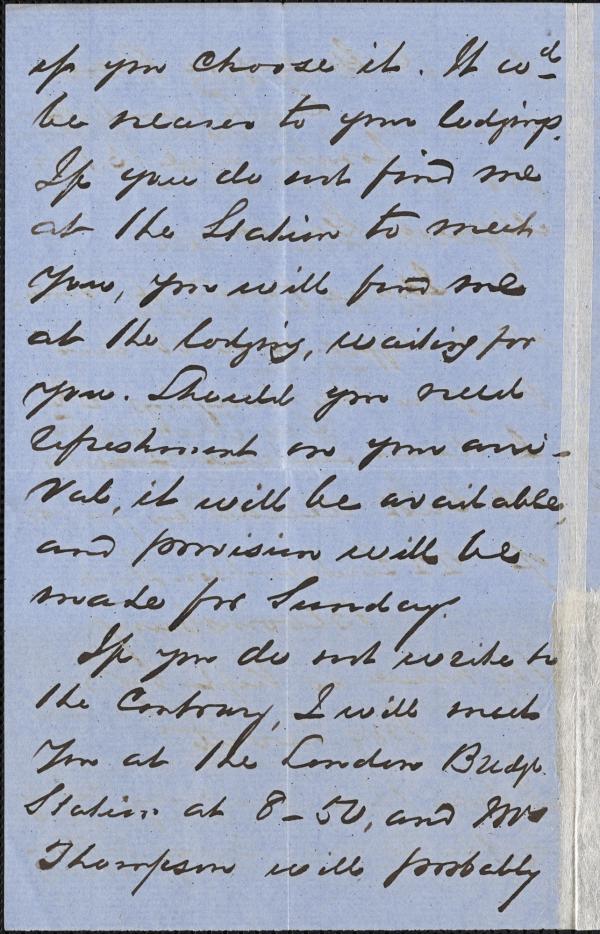 if you choose it. It wd
be nearer to your lodgings.
If you do not find me
at the Station to meet
you, you will find me
at the lodging, waiting for
you. Should you need
refreshment on your arri-
val, it will be available,
and provision will be
made for Sunday.
If you do not write to
the contrary, I will meet
you at the London Bridge
Station at 8-50, and Mr
Thompson will probably